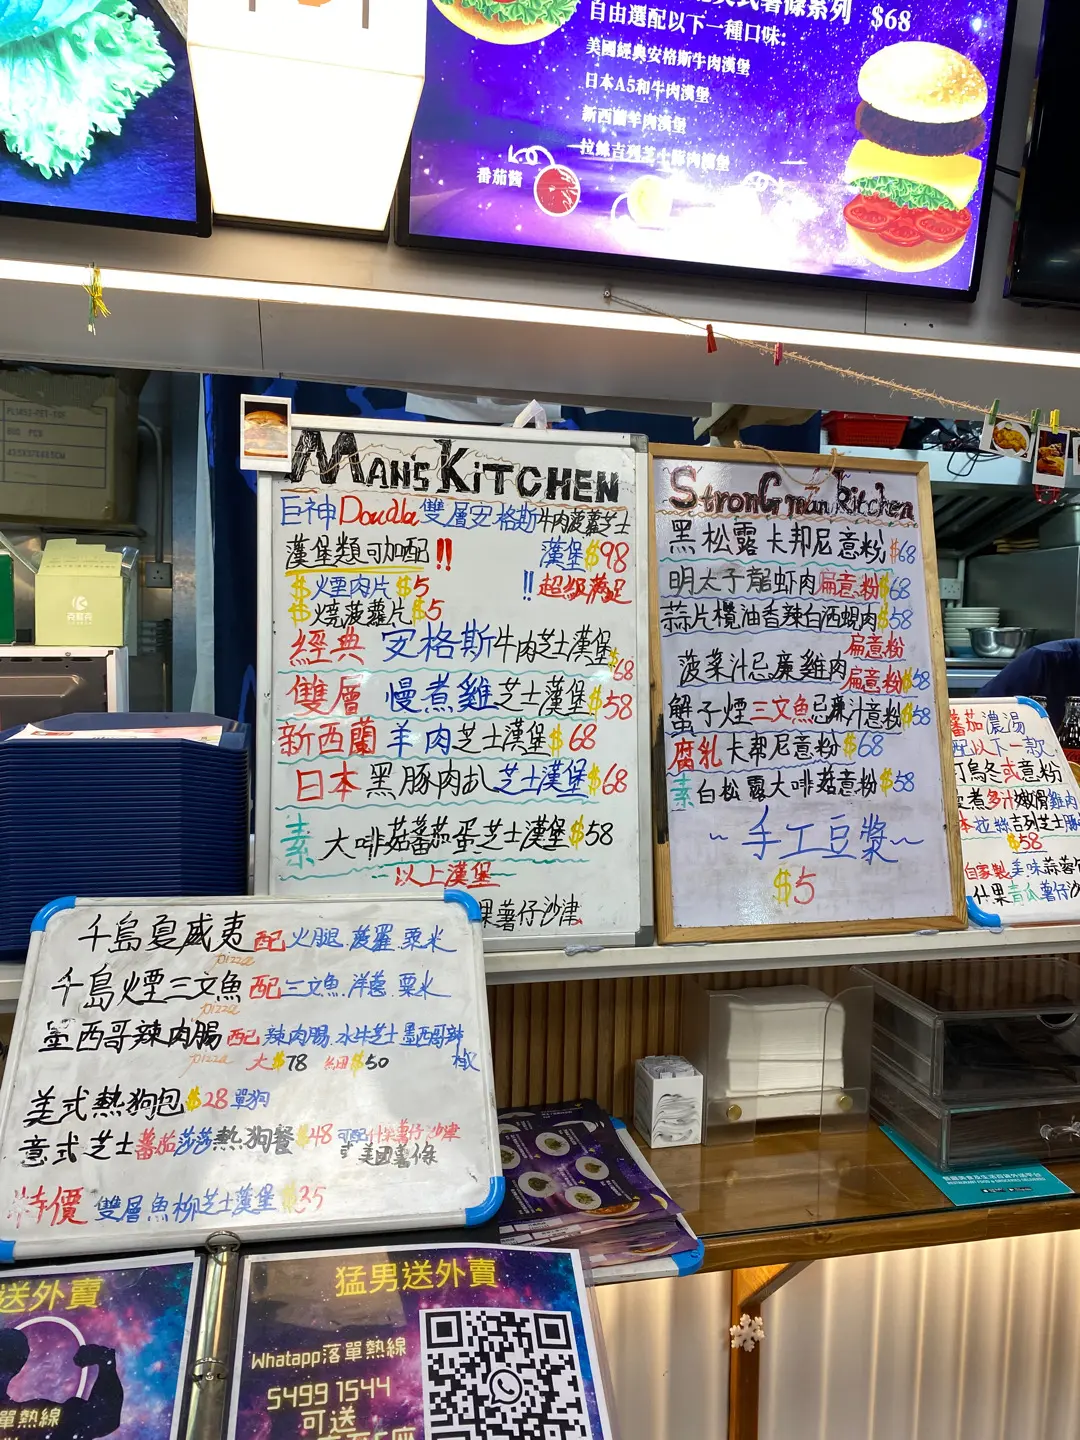 薯條系列 $68
自由選配以下一種口味:
美國經典安格斯牛肉漢堡
日本A5和牛肉漢堡
新西蘭羊肉漢堡
拉絲吉列芝士豚肉漢堡
番茄醬
MAN'S KITCHEN
巨神Doudla雙層安格斯牛肉菠蘿芝士
漢堡$98
漢堡類可加配!!
$煙肉片$5
!!超級滿足
$燒菠蘿片$5
經典 安格斯牛肉芝士漢堡$68
雙層 慢煮雞芝士漢堡$58
新西蘭羊肉芝士漢堡$68
日本黑豚肉扒芝士漢堡$68
素 大啡菇蕃茄蛋芝士漢堡$58
以上漢堡
果薯仔沙津
StronG man kitchen
黑松露卡邦尼意粉$68
明太子龍虾肉扁意粉$68
蒜片欖油香辣白酒蜆肉$58
扁意粉
菠菜汁忌廉雞肉扁意粉$58
蟹子煙三文魚忌廉汁意粉$58
腐乳卡邦尼意粉$68
素白松露大啡菇意粉$58
~手工豆漿~
$5
蕃茄濃湯
配以下一款
烏冬或意粉
煮多汁嫩滑雞肉
本拉絲吉列芝士豚
$58
自家製美味蒜蓉包
什果青瓜薯仔沙
千島夏威夷配火腿.菠蘿.粟米
pizza
千島煙三文魚配三文魚.洋蔥.粟米
pizza
墨西哥辣肉腸配辣肉腸.水牛芝士.墨西哥辣椒
pizza 大$78 細$50
美式熱狗包$28單狗
意式芝士蕃茄莎莎熱狗餐$48可配什果薯仔沙津
或美國薯條
特價 雙層魚柳芝士漢堡$35
送外賣
單熱線
猛男送外賣
Whatapp落單熱線
5499 1544
可送